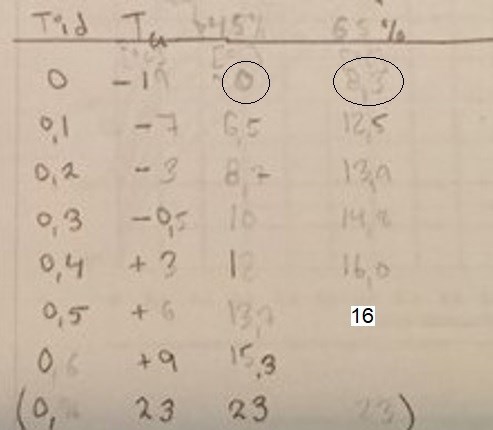 Tid Tu 45% 65%
0 -1 0 8,3
0,1 -7 6,5 12,5
0,2 -3 8,7 13,
0,3 -0,5 10 14,8
0,4 +3 12 16,0
0,5 +6 13,7 16
0,6 +9 15,3
(0, 23 23 23)